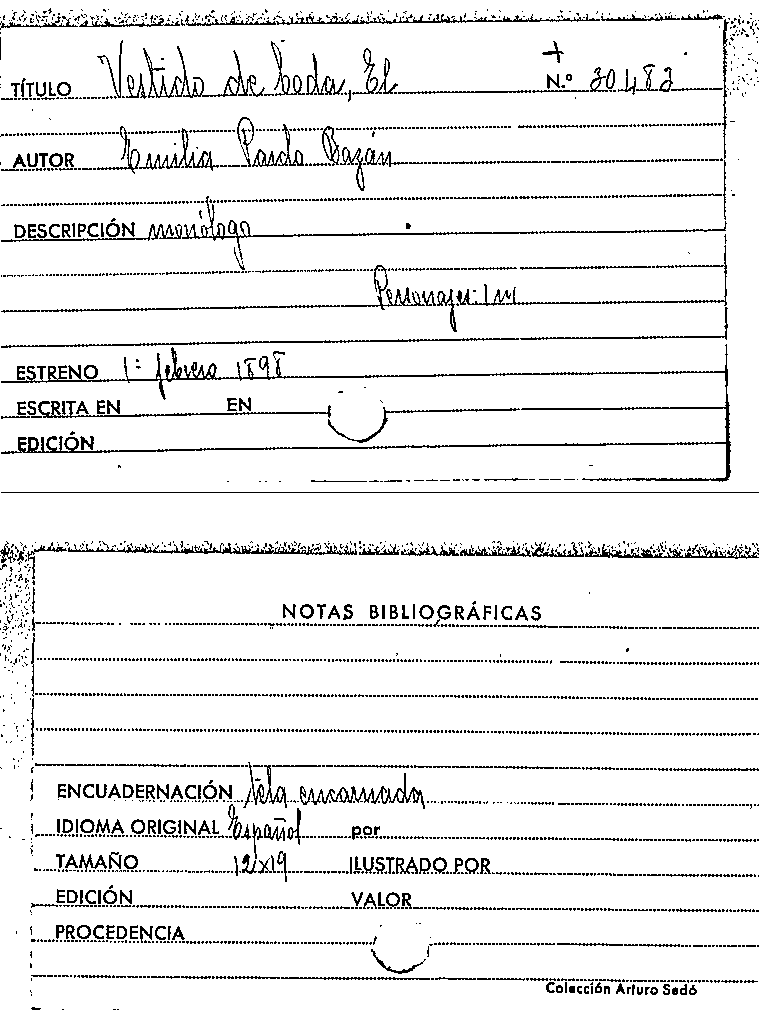 TÍTULO Vestido de boda, El
+
N.º 30482
AUTOR Emilia Pardo Bazán
DESCRIPCIÓN monólogo
Personajes: 1 m
ESTRENO 1º febrero 1898
ESCRITA EN EN
EDICIÓN
NOTAS BIBLIOGRÁFICAS
ENCUADERNACIÓN tela encarnada
IDIOMA ORIGINAL Español por
TAMAÑO 12x19 ILUSTRADO POR
EDICIÓN VALOR
PROCEDENCIA
Colección Arturo Sedó